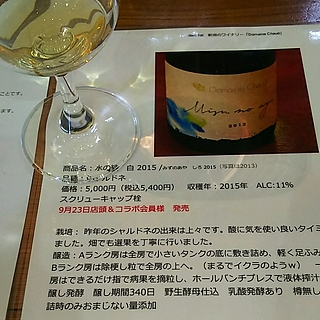 新潟のワイナリー「Domaine Chaud」
Domaine Chaud
Mizu no aya
2013
商品名：水の彩 白 2015 / みずのあや しろ 2015 (写真は2013)
品種：シャルドネ
価格：5,000円（税込5,400円） 収穫年：2015年 ALC:11%
スクリューキャップ栓
9月23日店頭＆コラボ会員様 発売
栽培：昨年のシャルドネの出来は上々です。酸に気を使い良いタイミ
ました。畑でも選果を丁寧に行いました。
醸造：Aランク房は全房で小さいタンクの底に敷き詰め、軽く足ふみ
Bランク房は除梗し粒で全房の上へ。（まるでイクラのようw）
房はできるだけ指で病果を摘粒し、ホールバンチプレスで液体搾汁
醸し発酵 醸し期間340日 野生酵母仕込 乳酸発酵あり 樽無し
詰時のみおまじない量添加
ことです。
す。